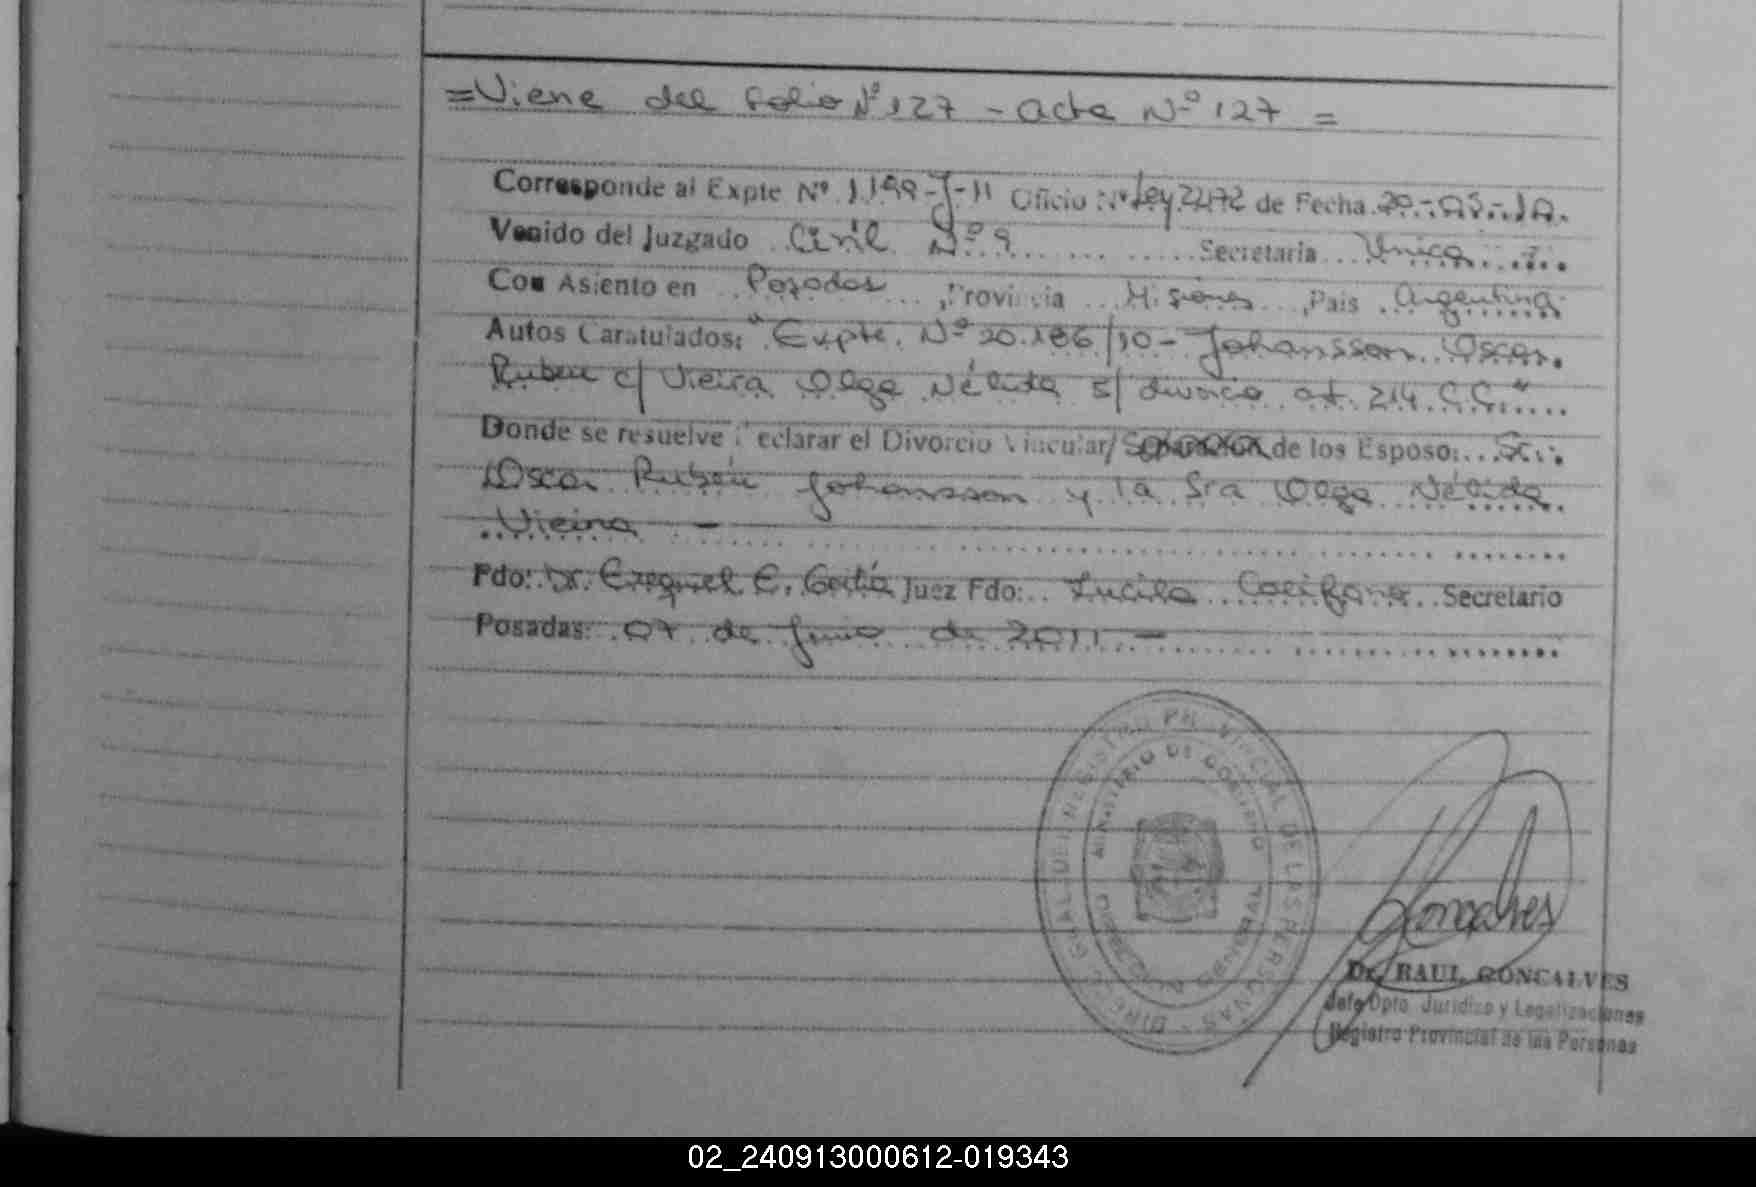 =Viene del folio Nº 127 - acta Nº 127 =
Corresponde al Expte Nº 1.199-J-11 Oficio Nº Ley 22172 de Fecha
Venido del Juzgado Civil Nº 9 Secretaria Unica
Con Asiento en Posadas, Provincia Misiones, Pais Argentina
Autos Caratulados: "Expte. Nº 20.186/10 - Johansson Oscar
Ruben c/ Vieira Olga Nélida s/ divorcio art. 214 C.C."
Donde se resuelve Declarar el Divorcio Vincular/Separación de los Esposo: Sr.
Oscar Rubén Johansson y la Sra Olga Nélida
Vieira -
Fdo: Dr. Ezequiel E. Juez Fdo: Lucila Secretario
Posadas: 07 de Junio de 2011 -
DIRECC. GRAL. DEL REGISTRO PROVINCIAL DE LAS PERSONAS
MINISTERIO DE GOBIERNO
Gonçalves
Dr. RAUL GONCALVES
Jefe Dpto. Juridico y Legalizaciones
Registro Provincial de las Personas
02_240913000612-019343